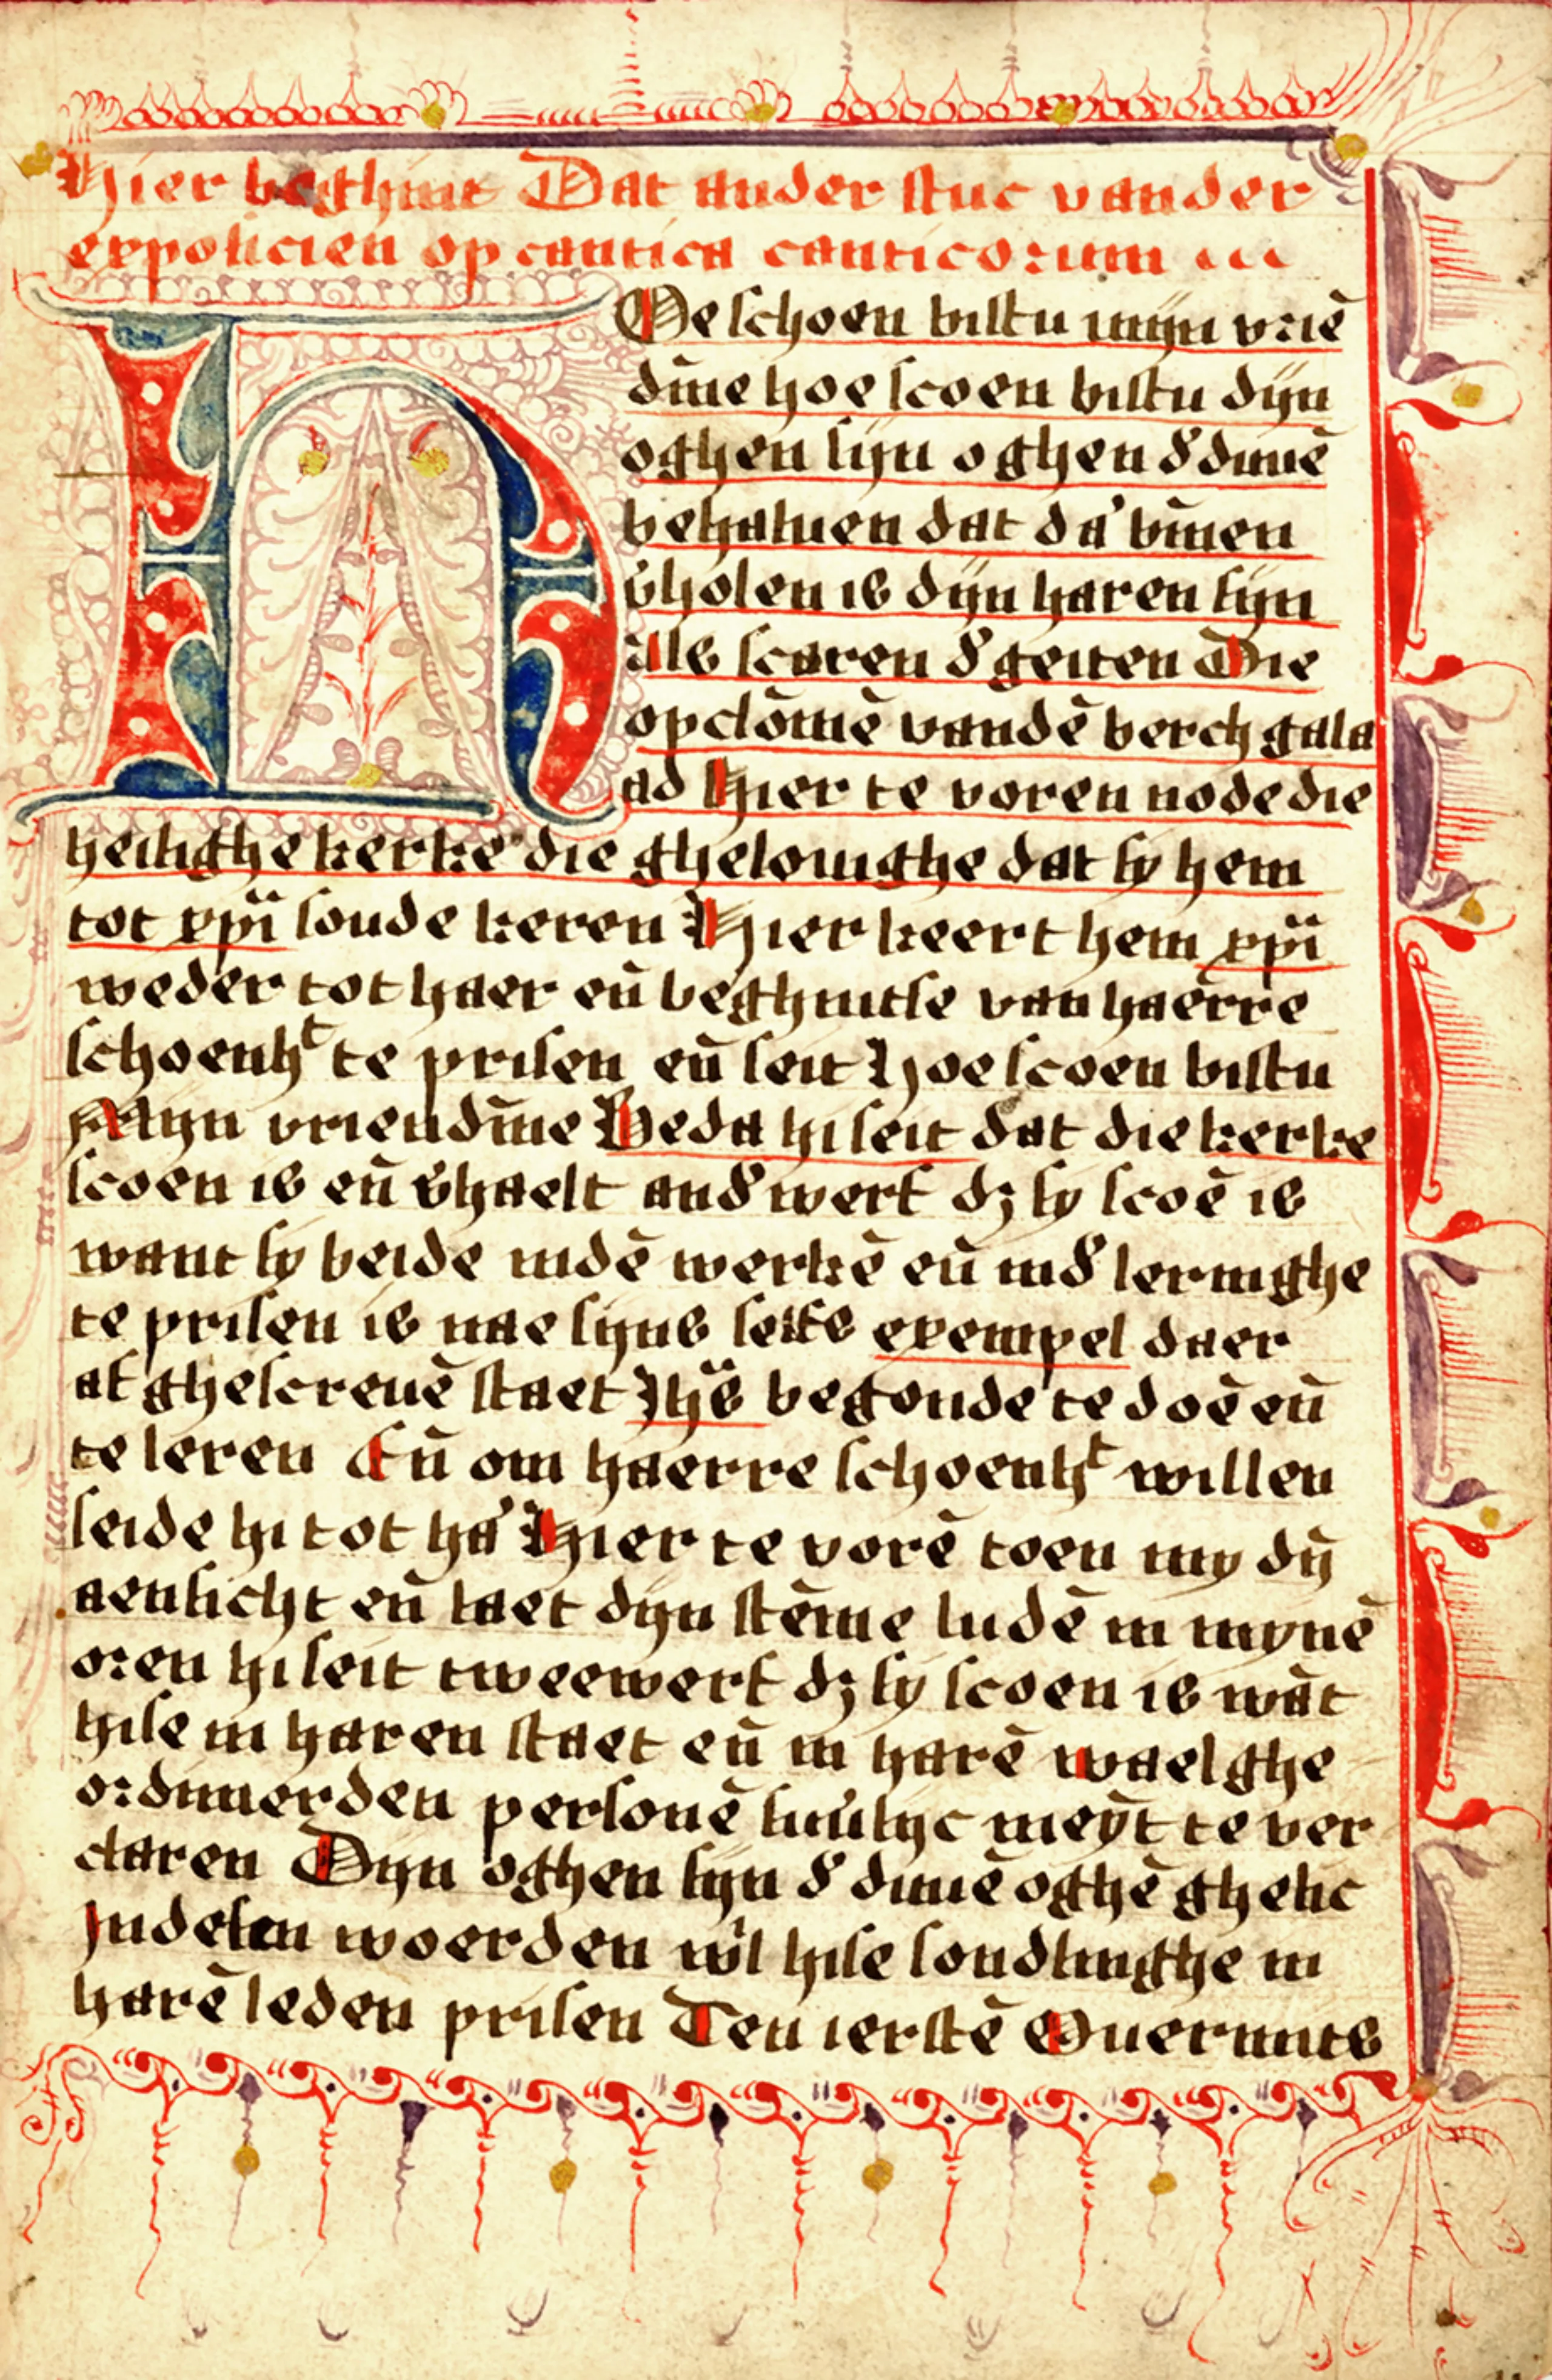 Hier beghint Dat ander stuc vander
exposicien op cantica canticorum
HOe schoen bistu mijn vriē
dīne hoe scoen bistu dijn
oghen sijn oghen d' duuē
behaluen dat da' bīnen
v'holen is dijn haren sijn
als scaren d' geiten Die
opclōmē vandē berch gala
ad Hier te voren node die
heilighe kerke die ghelouighe dat sy hem
tot xpī soude keren Hier keert hem xpī
weder tot haer eñ beghintse van haerre
schoenhᵗ te prisen eñ seit Hoe scoen bistu
Mijn vriendīne Beda hi seit dat die kerke
scoen is eñ v'haelt and'werf dʒ sy scoē is
want sy beide indē werkē eñ ind' leringhe
te prisen is nae sijns selfs exempel daer
af ghescreuē staet Ihs̄ begonde te doē eñ
te leren Eñ om haerre schoenhᵗ willen
seide hi tot ha' Hier te vorē toen my dȳ
aensicht eñ laet dijn stēme ludē in mynē
oren hi seit tweewerf dʒ sy scoen is wāt
hise in haren staet eñ in harē waelghe
ordinierden personē sūūlijc meynt te ver
claren Dijn oghen sijn d' duuē oghē ghelic
Indesen woerden wil hise sonderlinghe in
harē leden prisen Ten ierstē Ouermits